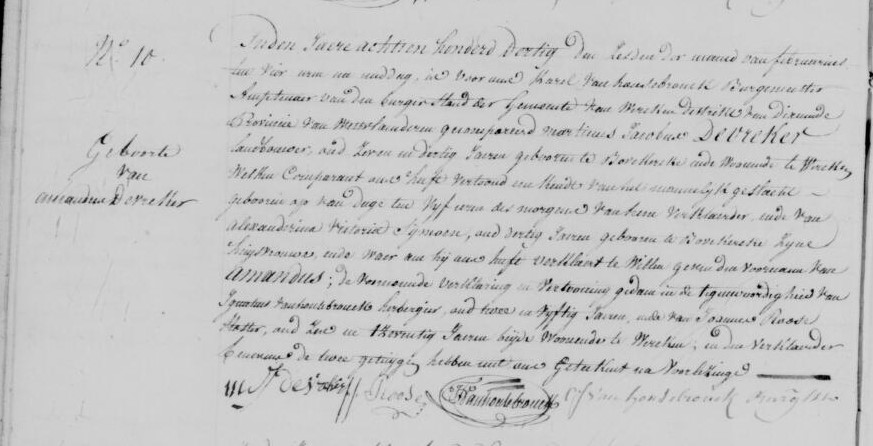 N.º 10.
Geboorte
van
amandus Devreker
In den Jaere achtien honderd dertig den zesden der maend van februarius
ten vier uren na middag, is voor ons Karel Van houtebrouck Burgemeester
Amptenaer van den burger stand der Gemeente van Wercken Distrikt van dixmude
Provincie van Westvlanderen gecompareerd martinus Jacobus Devreker
landbouwer, oud zeven en dertig Jaeren geboren te Bovekerke ende Woonende te Wercken
Welken Comparant ons heeft vertoond een kindt van het mannelyk geslacht
geboren op van dage ten vyf uren des morgens van hem Verklaerder, ende van
alexandrina Victoria Symoen, oud dertig Jaeren geboren te Bovekerke zyne
huysvrouwe, ende waer aen hij ons heeft verklaert te Willen geven den voornaem van
amandus; de voornoemde verklaring en Vertooning gedaen in de tegenwoordigheid van
Ignatius Vanhoutebrouck herbergier, oud twee en vyftig Jaeren, ende van Joannes Roose
oud zes en twentig Jaeren beyde Woonende te Wercken; en den Verklaerder
benevens de twee getuygen hebben met ons Geteekent na Voorlezinge
Roose Vanhoutebrouck Vanhoutebrouck